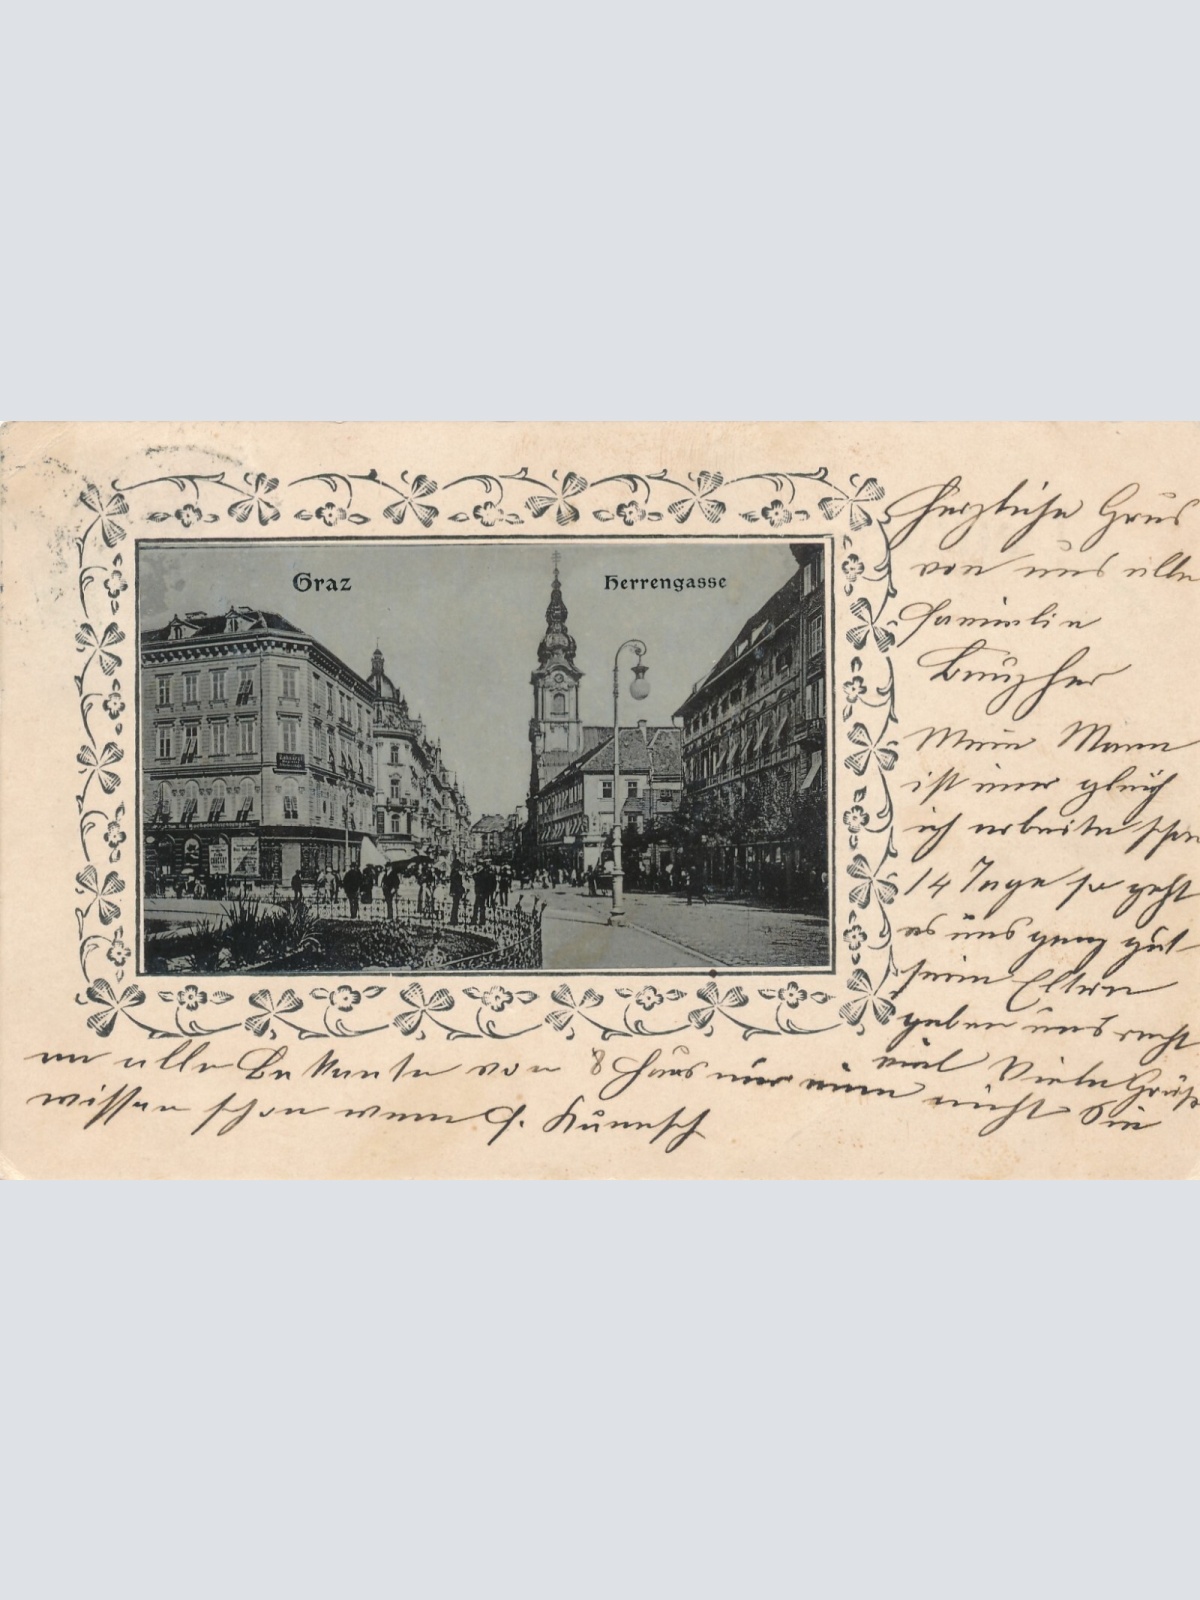 Graz
Herrengasse
Herzliche Grüs
von uns alle
Familie
Mein Mann
ist imer gleich
ich arbeite schon
14 Tage so geht
es uns ganz gut
seine Eltern
geben uns recht
viel Viele Grüße
an alle Bekante von 8 Haus nur einen nicht Sie
wissen schon wenn